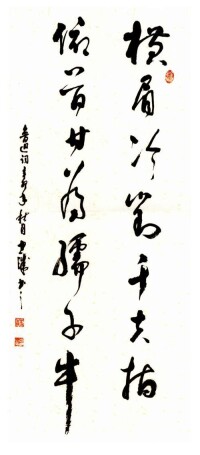 横眉冷对千夫指
俯首甘为孺子牛
鲁迅词辛卯年秋月